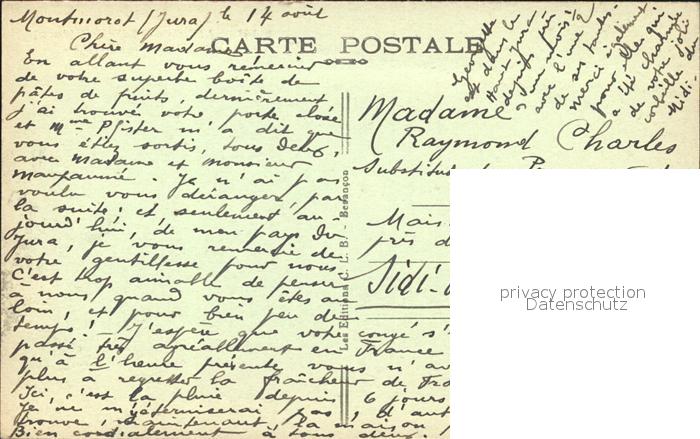 Montmorot (Jura) le 14 août
Chère Madame
CARTE POSTALE
En allant vous remercier
de votre superbe boîte de
pâtes de fruits, dernièrement
j'ai trouvé votre porte close
et Mme Pfister m'a dit que
vous étiez sortis, tous deux,
avec Madame et Monsieur
Je n'ai pas
voulu vous déranger par
la suite; et seulement au-
jourd'hui, de mon pays du
Jura, je vous remercie de
votre gentillesse pour nous
C'est trop aimable de penser
à nous quand vous êtes au
loin, et pour bien peu de
temps! J'espère que votre congé s'
passé très agréablement en France
qu'à l'heure présente vous n'av
plus à regretter la fraîcheur de Fra
Ici, c'est la pluie depuis 6 jours
Je ne m'éterniserai pas, et aut
trouve, maintenant la maison
Bien cordialement à tous deux.
Georgette
est dans le
Haut Jura
depuis près
d'un mois
avec l'une
de ses tantes.
merci également
pour elle qui
a été charmée
de votre jolie
corbeille du
Midi
Les Editions C. L. B. - Besançon
Madame
Raymond Charles
Substitut
Mais
près d
Sidi-
privacy protection
Datenschutz